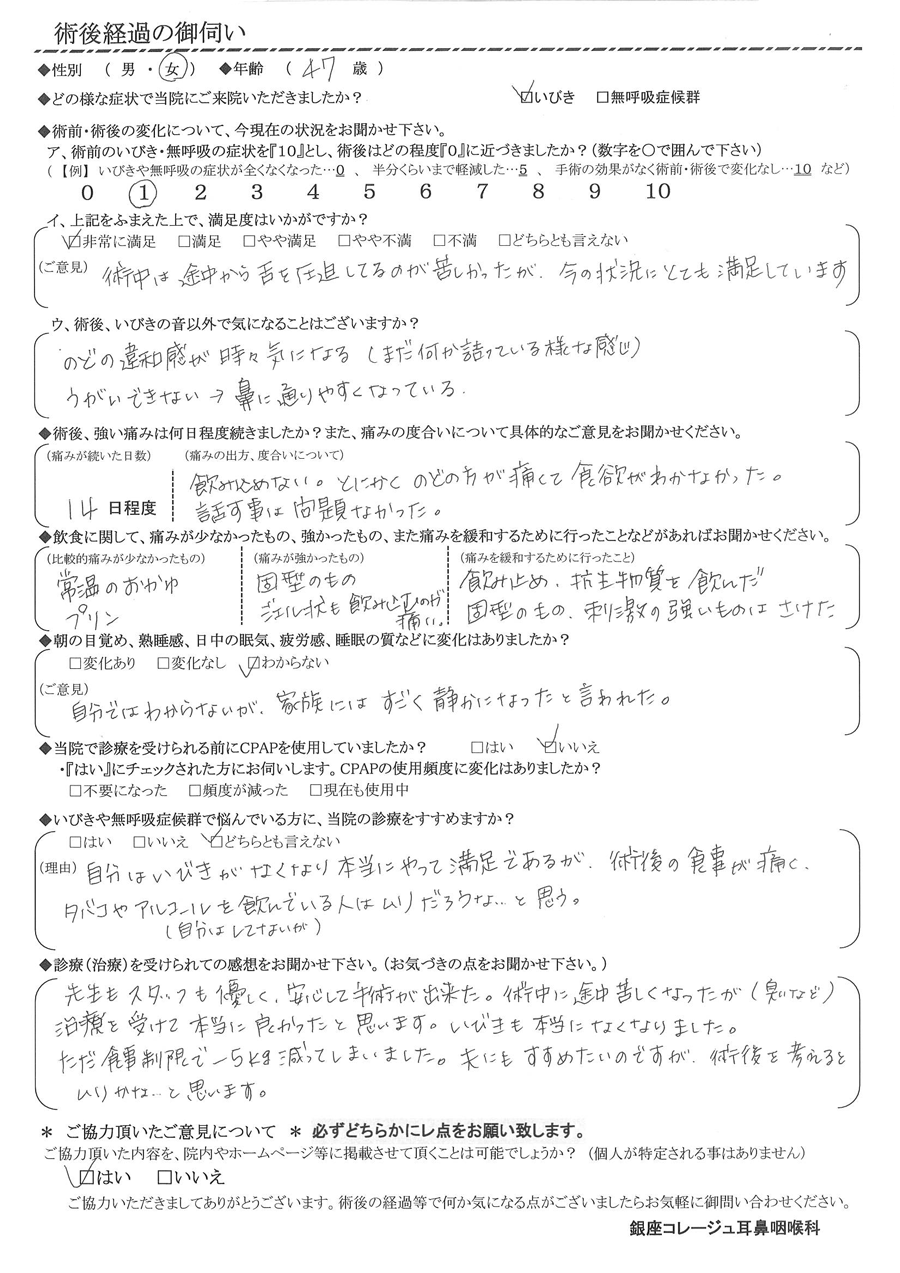 術後経過の御伺い
◆性別 （ 男 ・ 女 ） ◆年齢 （ 47 歳 ）
◆どの様な症状で当院にご来院いただきましたか？ ☑いびき □無呼吸症候群
◆術前・術後の変化について、今現在の状況をお聞かせ下さい。
ア、術前のいびき・無呼吸の症状を『10』とし、術後はどの程度『0』に近づきましたか？（数字を〇で囲んで下さい）
（【例】 いびきや無呼吸の症状が全くなくなった…0 、 半分くらいまで軽減した…5 、 手術の効果がなく術前・術後で変化なし…10 など）
0 1 2 3 4 5 6 7 8 9 10
イ、上記をふまえた上で、満足度はいかがですか？
☑非常に満足 □満足 □やや満足 □やや不満 □不満 □どちらとも言えない
（ご意見） 術中は途中から舌を圧迫してるのが苦しかったが、今の状況にとても満足しています
ウ、術後、いびきの音以外で気になることはございますか？
のどの違和感が時々気になる（まだ何か詰っている様な感じ）
うがいできない→鼻に通りやすくなっている.
◆術後、強い痛みは何日程度続きましたか？また、痛みの度合いについて具体的なご意見をお聞かせください。
（痛みが続いた日数） （痛みの出方、度合いについて）
飲み込めない。とにかくのどの方が痛くて食欲がわかなかった。
14 日程度 話す事は問題なかった。
◆飲食に関して、痛みが少なかったもの、強かったもの、また痛みを緩和するために行ったことなどがあればお聞かせください。
（比較的痛みが少なかったもの） （痛みが強かったもの） （痛みを緩和するために行ったこと）
常温のおかゆ 固型のもの 飲み止め、抗生物質を飲んだ
プリン ジェル状も飲み込むのが痛い。 固型のもの、刺激の強いものはさけた
◆朝の目覚め、熟睡感、日中の眠気、疲労感、睡眠の質などに変化はありましたか？
□変化あり □変化なし ☑わからない
（ご意見）
自分ではわからないが、家族にはすごく静かになったと言われた。
◆当院で診療を受けられる前にCPAPを使用していましたか？ □はい ☑いいえ
・『はい』にチェックされた方にお伺いします。CPAPの使用頻度に変化はありましたか？
□不要になった □頻度が減った □現在も使用中
◆いびきや無呼吸症候群で悩んでいる方に、当院の診療をすすめますか？
□はい □いいえ ☑どちらとも言えない
（理由） 自分はいびきがなくなり本当にやって満足であるが、術後の食事が痛く、
タバコやアルコールを飲んでいる人はムリだろうな…と思う。
（自分はしてないが）
◆診療（治療）を受けられての感想をお聞かせ下さい。（お気づきの点をお聞かせ下さい。）
先生もスタッフも優しく、安心して手術が出来た。術中に途中苦しくなったが（臭いなど）
治療を受けて本当に良かったと思います。いびきも本当になくなりました。
ただ食事制限で－5kg減ってしまいました。夫にもすすめたいのですが、術後を考えると
ムリかな…と思います。
＊ ご協力頂いたご意見について ＊ 必ずどちらかにレ点をお願い致します。
ご協力頂いた内容を、院内やホームページ等に掲載させて頂くことは可能でしょうか？ （個人が特定される事はありません）
☑はい □いいえ
ご協力いただきましてありがとうございます。術後の経過等で何か気になる点がございましたらお気軽に御問い合わせください。
銀座コレージュ耳鼻咽喉科